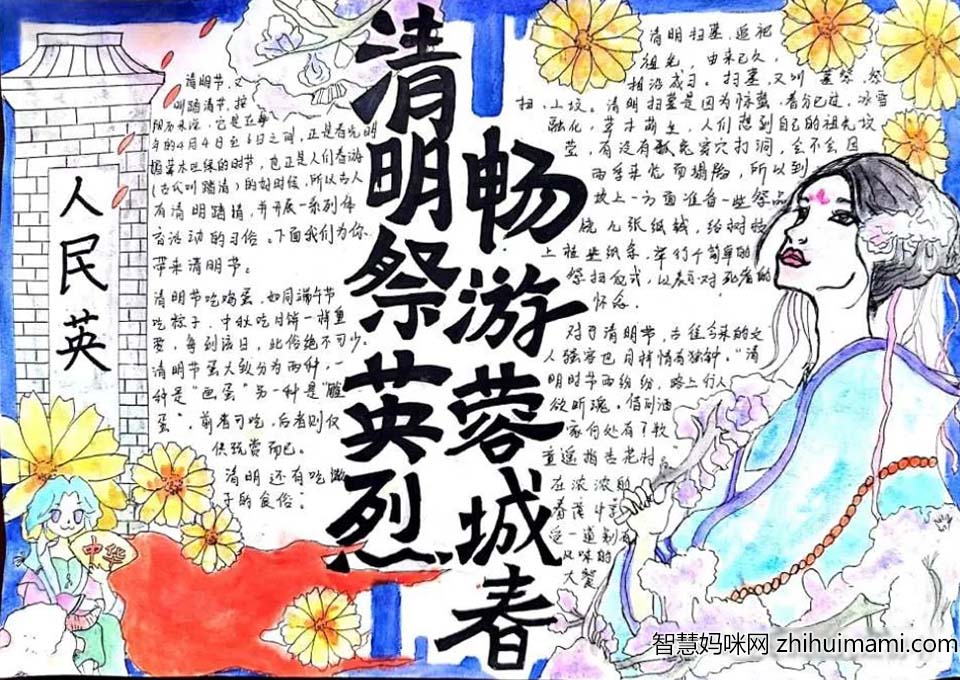 清明祭英烈
畅游蓉城春
人民英
清明节,又
叫踏青节,按
阳历来说,它是在每
年的4月4日至6日之间,正是春光明
媚草木吐绿的时节,也正是人们春游
(古代叫踏青)的好时候,所以古人
有清明踏青,并开展一系列体
育活动的习俗。下面我们为你
带来清明节。
清明节吃鸡蛋,如同端午节
吃粽子,中秋吃月饼一样重
要,每到该日,此俗绝不可少。
清明节蛋大致分为两种,一
种是“画蛋”另一种是“雕
蛋”,前者可吃,后者则仅
供玩赏而已。
清明还有吃馓
子的食俗:
中华
清明扫墓,追祀
祖先,由来已久,
相沿成习。扫墓,又叫墓祭、祭
扫、上坟。清明扫墓是因为惊蛰、春分已过,冰雪
融化,草木萌生,人们想到自己的祖先坟
茔,有没有狐兔穿穴打洞,会不会因
雨季来临而塌陷,所以到
坟上一方面准备一些祭品
烧几张纸钱,给树枝
上挂些纸条,举行个简单的
祭扫仪式,以表示对死者的
怀念。
对于清明节,古往今来的文
人骚客也月样情有独钟,“清
明时节雨纷纷,路上行人
欲断魂。借问酒
家何处有?牧
童遥指杏花村。
在浓浓的
春意中
受一道别有
风味的
大餐
智慧妈咪网 zhihuimami.com